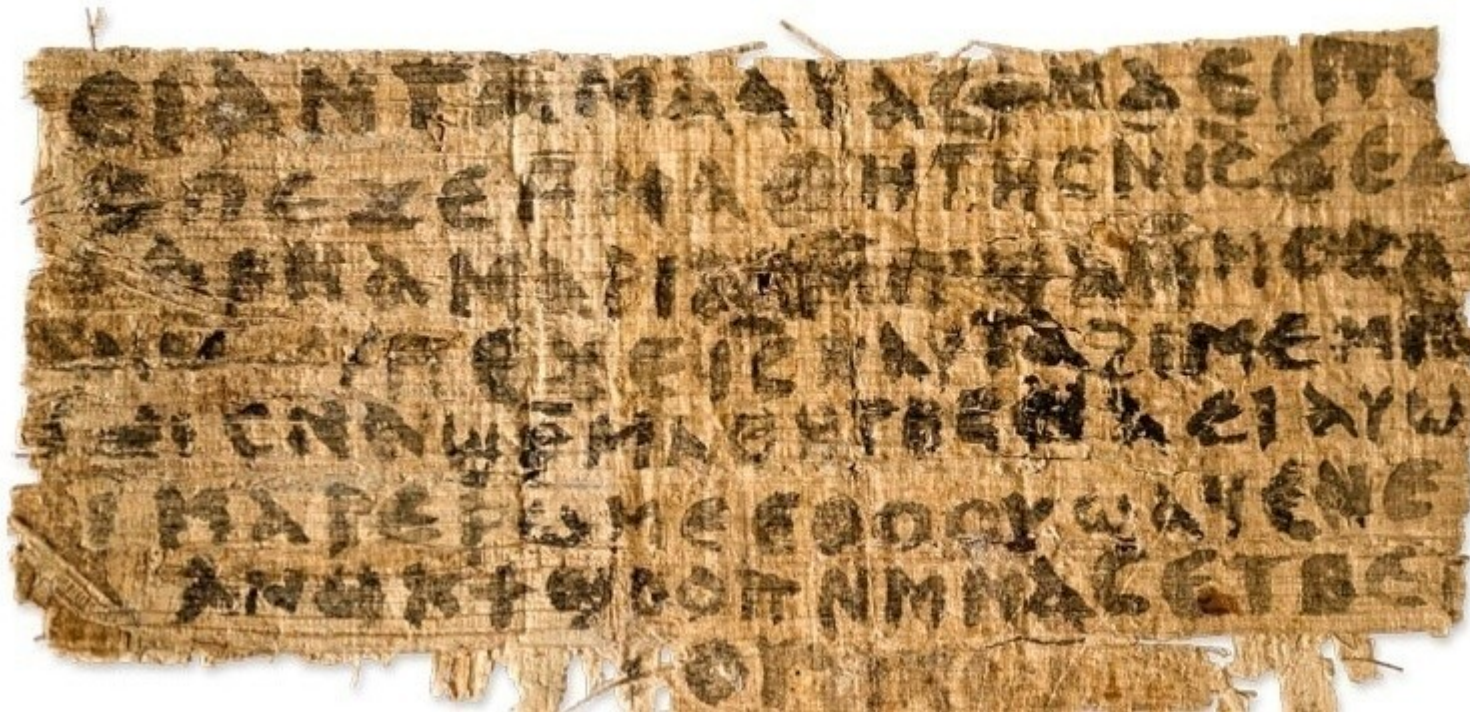 ⲉⲓ ⲁⲛ ⲧⲁⲙⲁⲁⲩ ⲁⲥϯ ⲛⲁⲉⲓ
ⲡⲉϫⲉ ⲙⲙⲁⲑⲏⲧⲏⲥ ⲛⲓ̅ⲥ̅ ϫⲉ
ⲁⲣⲛⲁ ⲙⲁⲣⲓⲁⲙ ⲙⲡϣⲁ ⲙⲙⲟⲥ ⲁ
ⲡⲉϫⲉ ⲓ̅ⲥ̅ ⲛⲁⲩ ⲧⲁϩⲓⲙⲉ ⲙⲛ̅
ⲥⲛⲁϣⲣ̅ⲙⲁⲑⲏⲧⲏⲥ ⲛⲁⲉⲓ ⲁⲩⲱ
ⲓ ⲙⲁⲣⲉⲣⲱⲙⲉ ⲉⲑⲟⲟⲩ ϣⲁϥⲉ ⲛⲉ
ⲁⲛⲟⲕ ϯϣⲟⲟⲡ ⲛⲙⲙⲁⲥ ⲉⲧⲃⲉ ⲡ